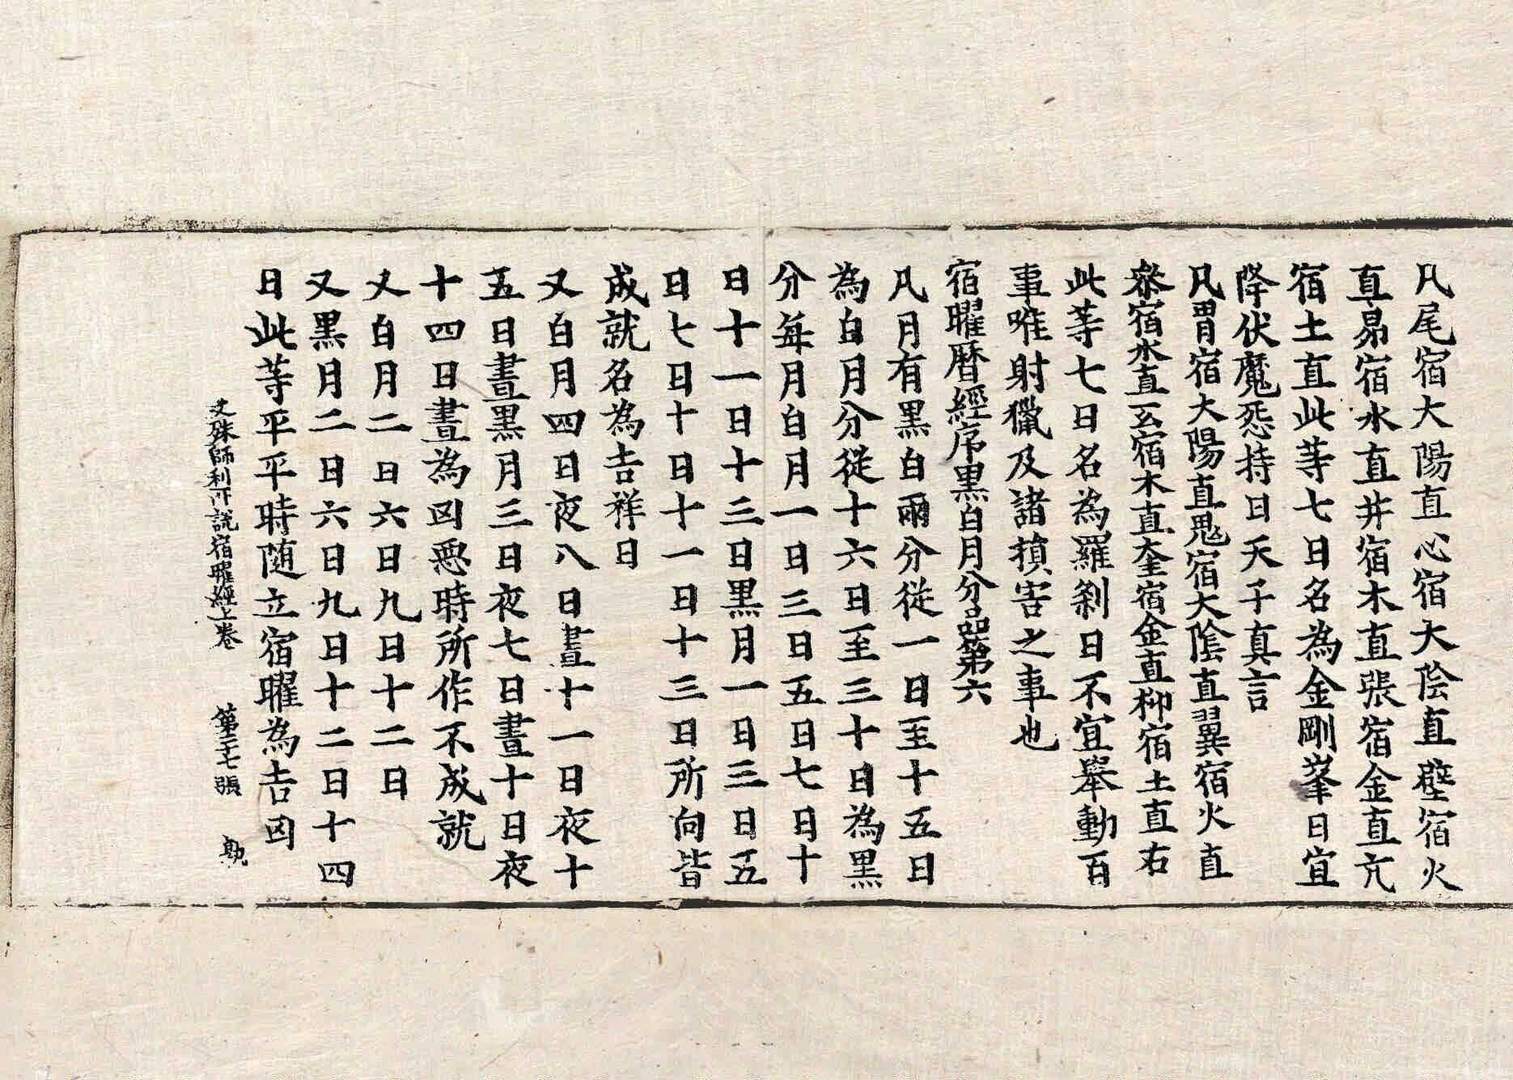 凡尾宿大陽直心宿大陰直壁宿火
直昴宿水直井宿木直張宿金直亢
宿土直此等七日名為金剛峯日宜
降伏魔怨持日天子真言
凡胃宿大陽直鬼宿大陰直翼宿火直
叅宿水直玄宿木直奎宿金直柳宿土直右
此等七日名為羅剎日不宜舉動百
事唯射獵及諸損害之事也
宿曜曆經序黒白月分品第六
凡月有黒白兩分從一日至十五日
為白月分從十六日至三十日為黒
分每月白月一日三日五日七日十
日十一日十三日黒月一日三日五
日七日十日十一日十三日所向皆
成就名為吉祥日
又白月四日夜八日晝十一日夜十
五日晝黒月三日夜七日晝十日夜
十四日晝為凶惡時所作不成就
又白月二日六日九日十二日
又黒月二日六日九日十二日十四
日此等平平時随立宿曜為吉凶
文殊師利所說宿曜經上卷 第二十七張 執